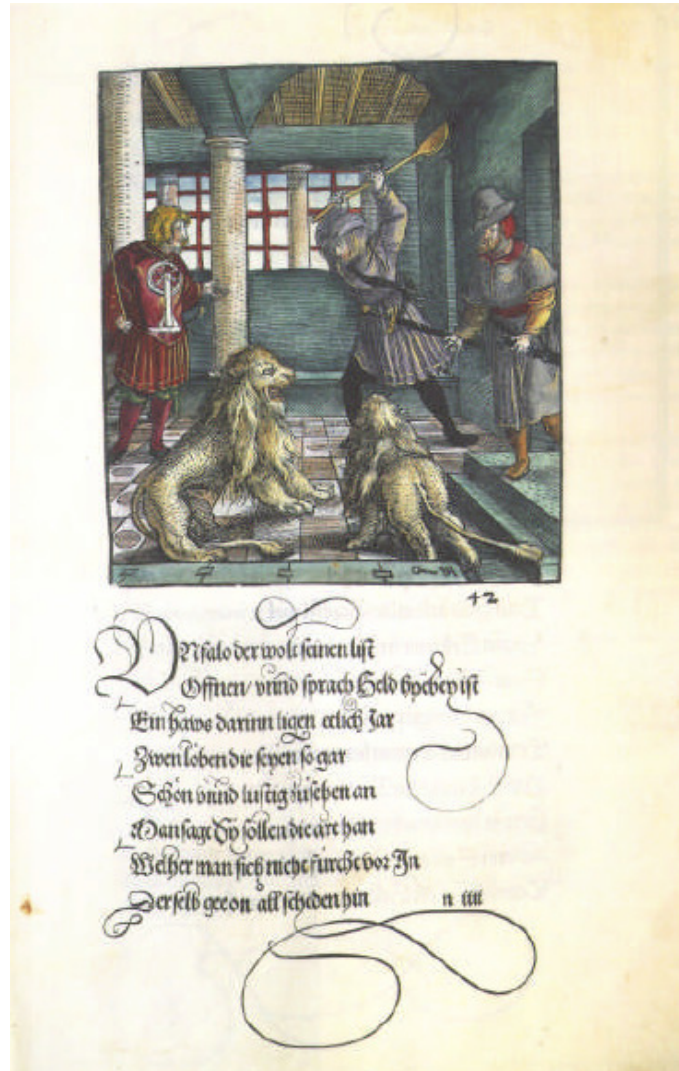 42
VNfalo der wolt seinen list
Offnen / vnnd sprach Held hyebey ist
Ein haws darinn ligen etlich Jar
Zwen löben die seyen so gar
Schön vnnd lustig zusehen an
Man sagt Sy sollen die art han
Welher man sich nicht fürcht vor In
Derselb gee on all scheden hin
n iiii